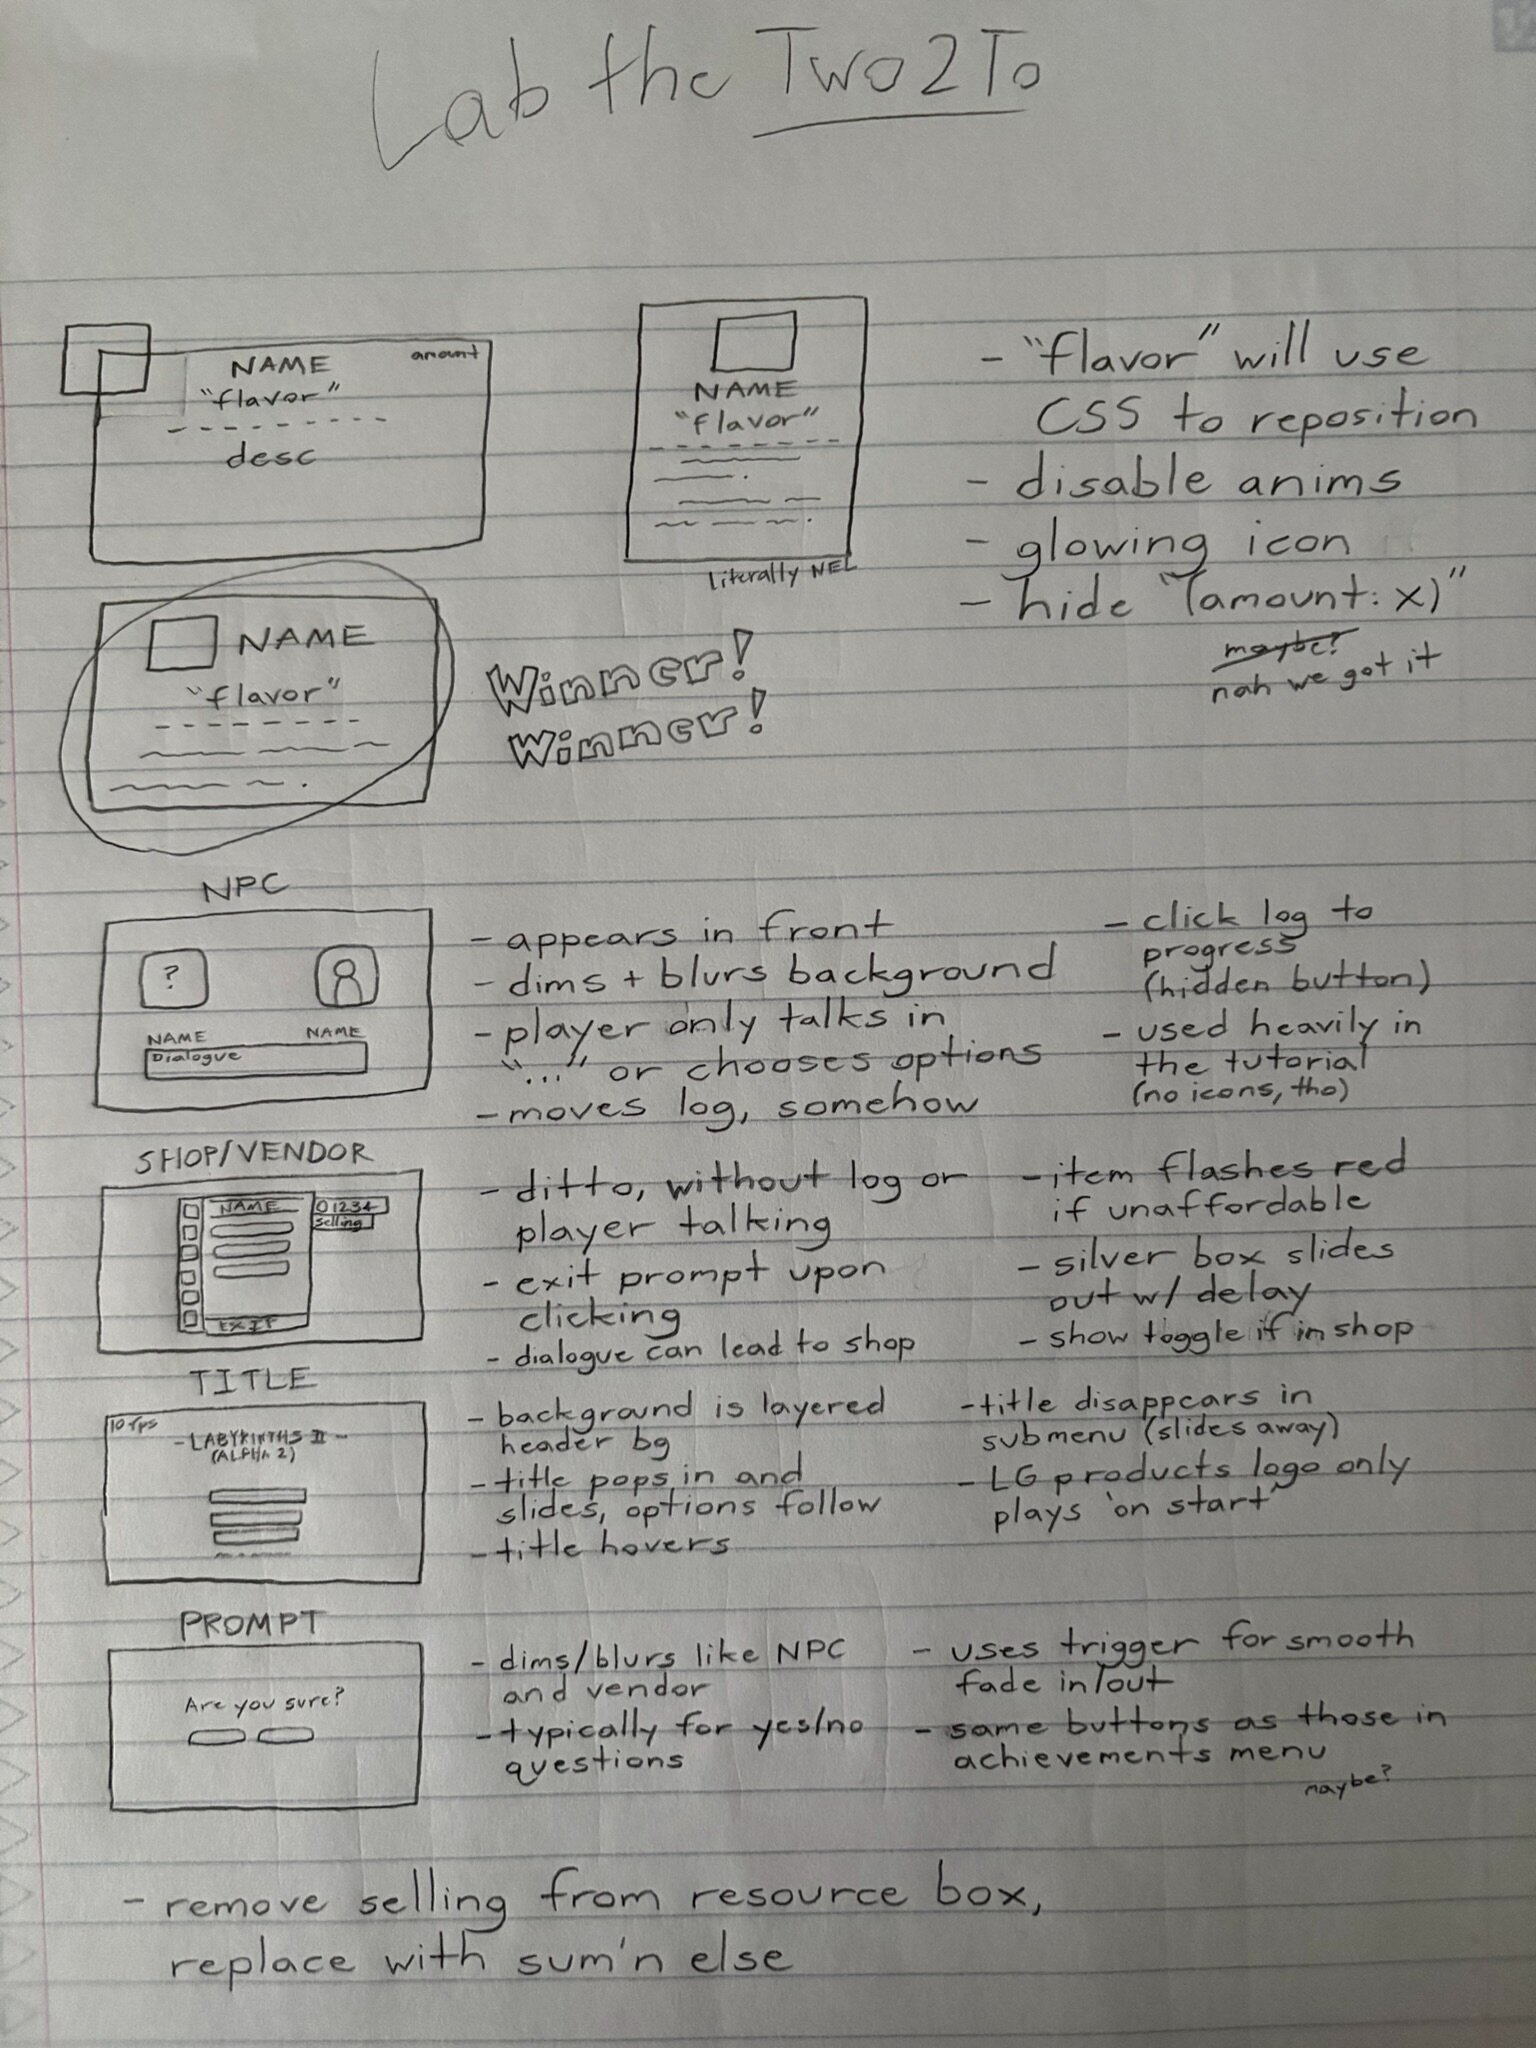 Lab the Two2To
NAME
amount
"flavor"
desc
NAME
"flavor"
literally NEL
- "flavor" will use
CSS to reposition
- disable anims
- glowing icon
- hide "(amount: x)"
maybe?
nah we got it
NAME
"flavor"
Winner!
Winner!
NPC
?
NAME
NAME
Dialogue
- appears in front
- dims + blurs background
- player only talks in
"..." or chooses options
- moves log, somehow
- click log to
progress
(hidden button)
- used heavily in
the tutorial
(no icons, tho)
SHOP/VENDOR
NAME
01234
Selling
EXIT
- ditto, without log or
player talking
- exit prompt upon
clicking
- dialogue can lead to shop
- item flashes red
if unaffordable
- silver box slides
out w/ delay
- show toggle if in shop
TITLE
-LABYRINTHS II-
(ALPHA 2)
- background is layered
header bg
- title pops in and
slides, options follow
- title hovers
- title disappears in
submenu (slides away)
- LG products logo only
plays "on start"
PROMPT
Are you sure?
- dims/blurs like NPC
and vendor
- typically for yes/no
questions
- uses trigger for smooth
fade in/out
- same buttons as those in
achievements menu
maybe?
- remove selling from resource box,
replace with sum'n else